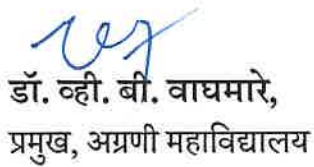 डॉ. व्ही. बी. वाघमारे,
प्रमुख, अग्रणी महाविद्यालय